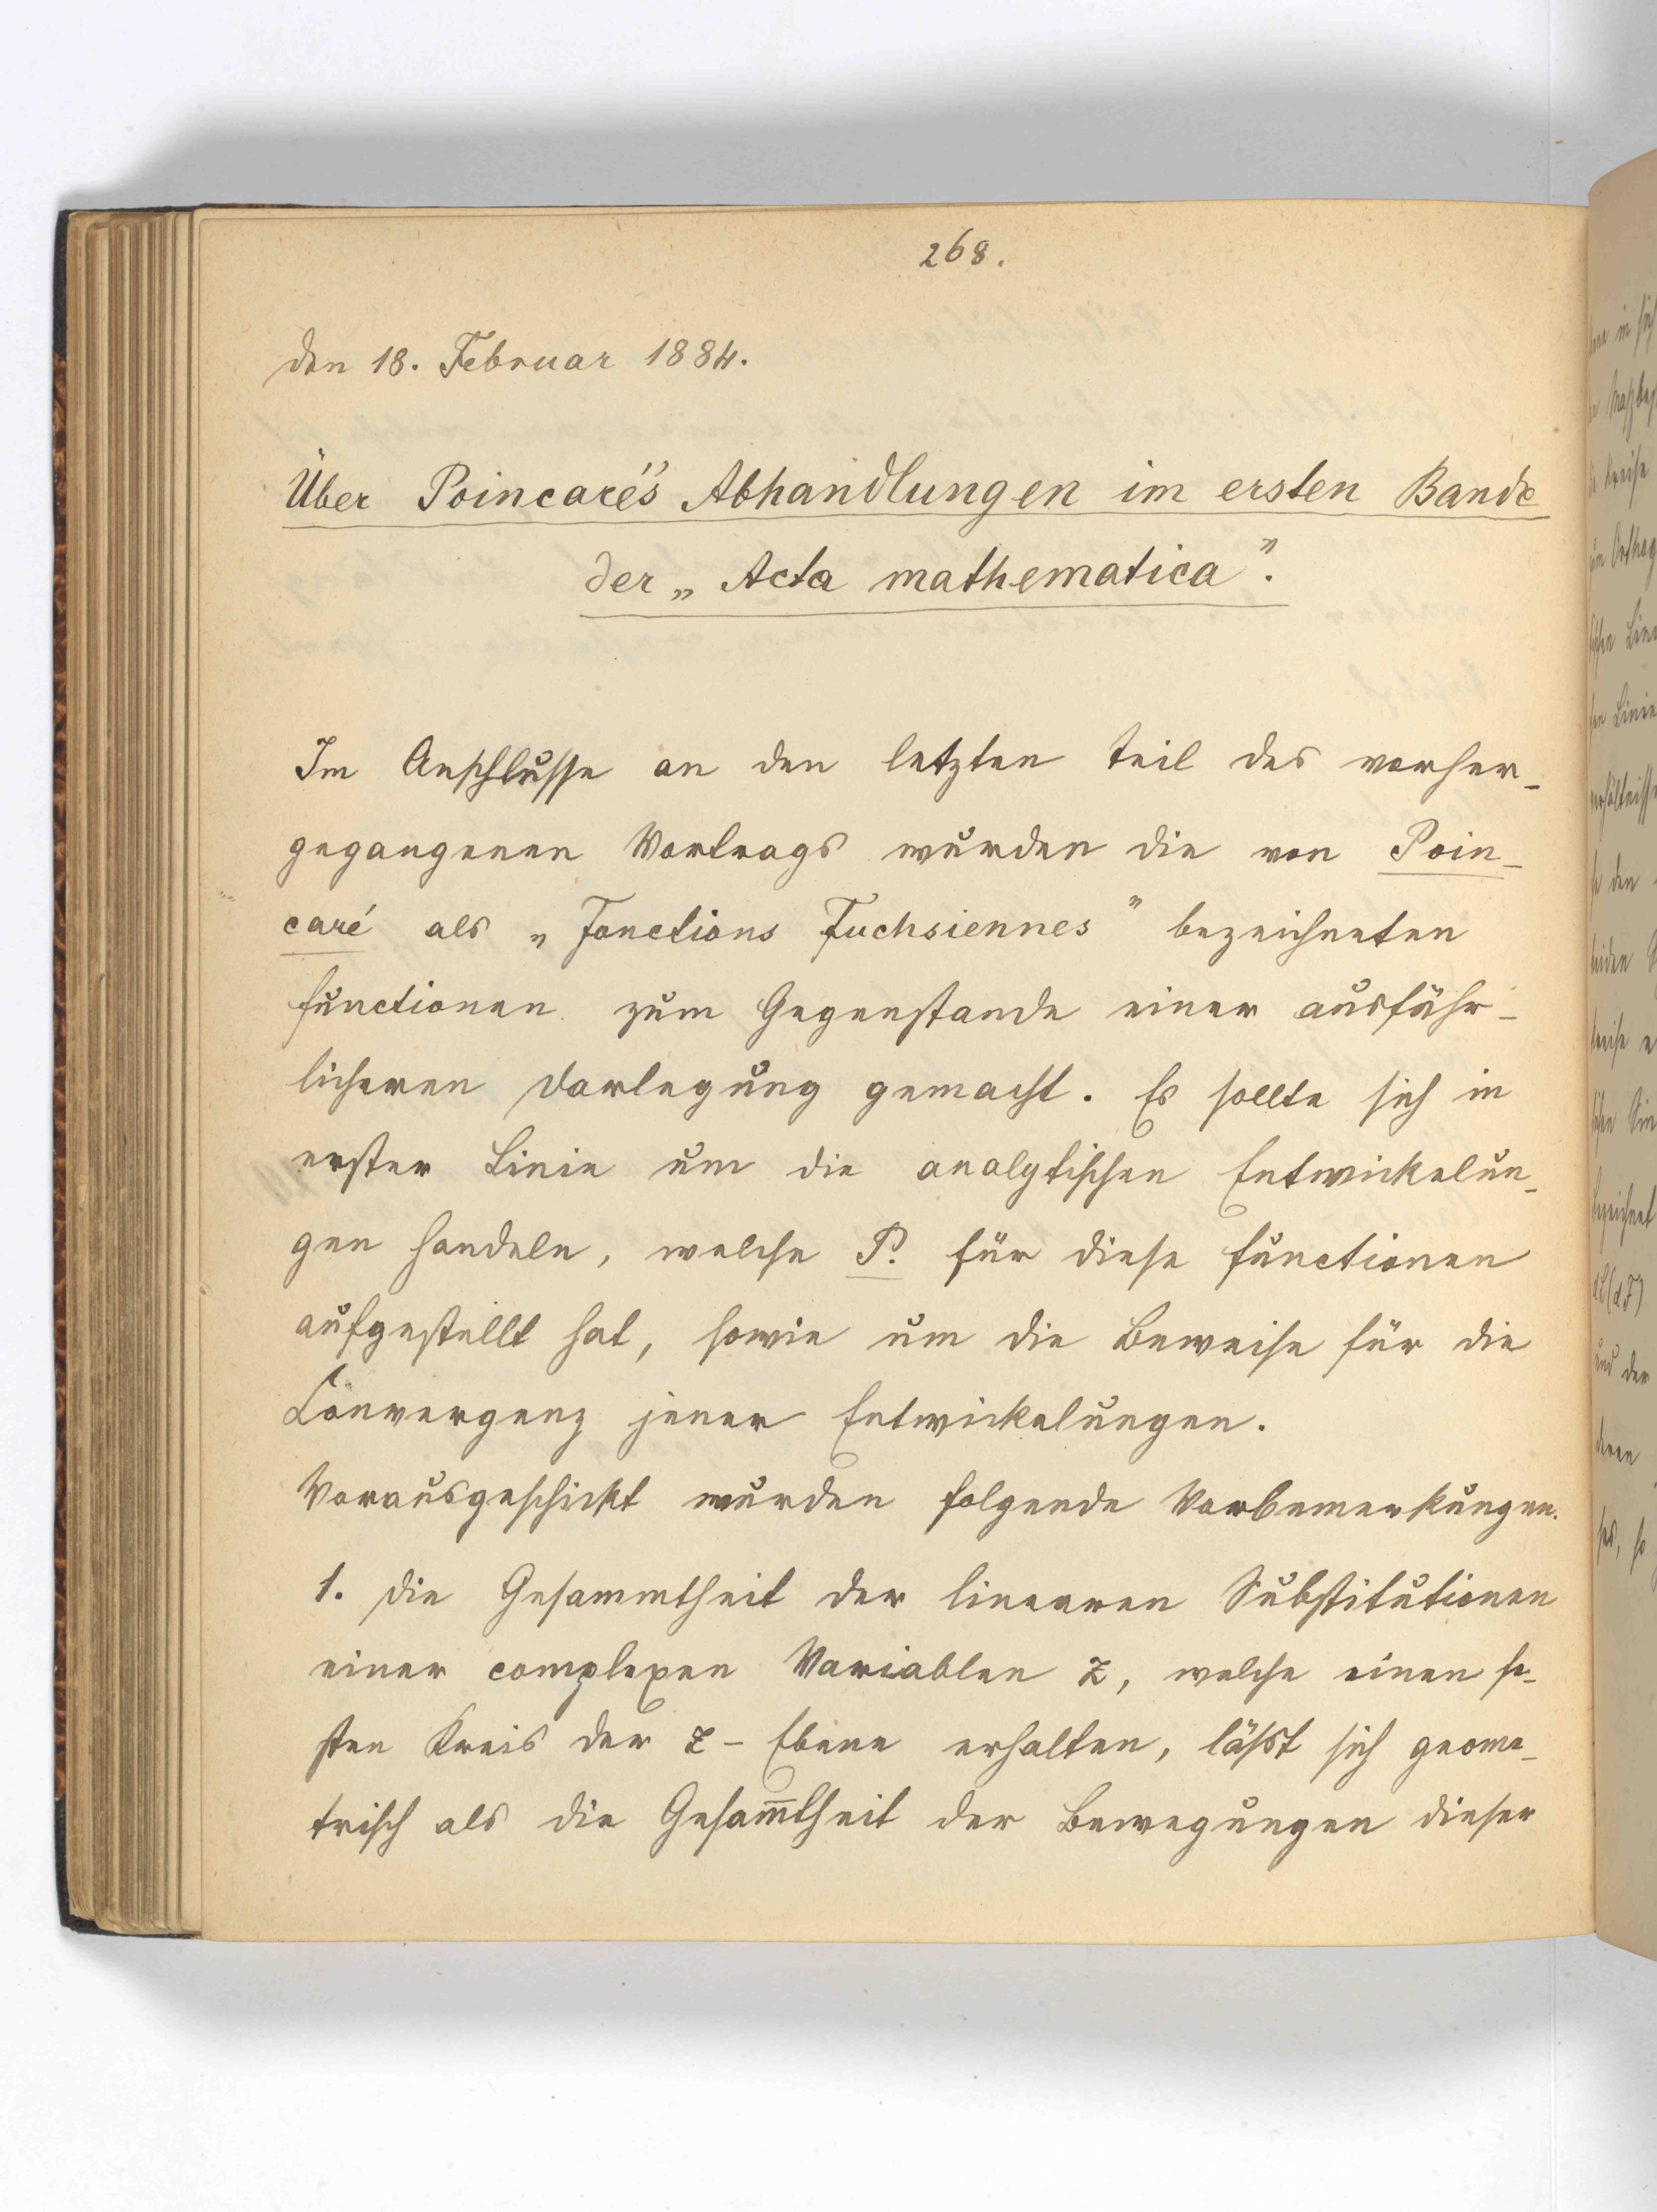 268.
den 18. Februar 1884.
Über Poincaré's Abhandlungen im ersten Bande
der „Acta mathematica".
Im Anschlusse an den letzten Teil des vorher-
gegangenen Vortrags wurden die von Poin-
caré als „Fonctions Fuchsiennes" bezeichneten
Functionen zum Gegenstande einer ausführ-
licheren Darlegung gemacht. Es sollte sich in
erster Linie um die analytischen Entwickelun-
gen handeln, welche P. für diese Functionen
aufgestellt hat, sowie um die Beweise für die
Convergenz jener Entwickelungen.
Vorausgeschickt wurden folgende Vorbemerkungen.
1. Die Gesammtheit der linearen Substitutionen
einer complexen Variablen z, welche einen fe-
sten Kreis der z-Ebene erhalten, läßt sich geome-
trisch als die Gesam̅theit der Bewegungen dieser